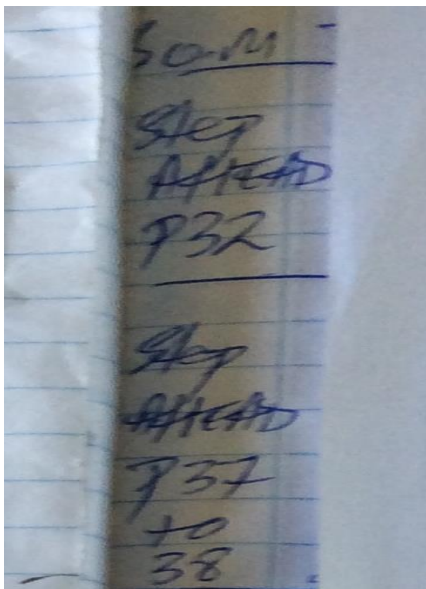 Step
AHEAD
P32
Step
AHEAD
P37
to
38